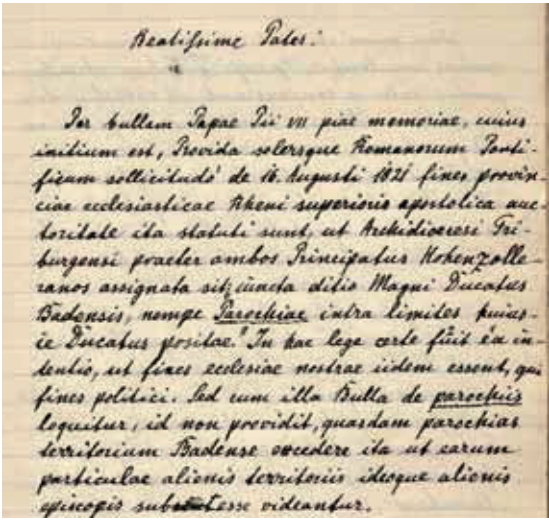 Beatissime Pater!
Per bullam Papae Pii VII piae memoriae, cuius
initium est, Provida solersque Romanorum Ponti-
ficum sollicitudo" de 16. Augusti 1821 fines provin-
ciae ecclesiasticae Rheni superioris apostolica auc-
toritate ita statuti sunt, ut Archidioecesi Fri-
burgensi praeter ambos Principatus Hohenzolle-
ranos assignata sit „cuncta ditio Magni Ducatus
Badensis, nempe Parochiae intra limites huius-
ce Ducatus positae." In hac lege certe fuit ea in-
tentio, ut fines ecclesiae nostrae iidem essent, qui
fines politici. Sed cum illa Bulla de parochiis
loquitur, id non providit, quasdam parochias
territorium Badense excedere ita ut earum
particulae alienis territoriis ideoque alienis
episcopis subesse videantur.